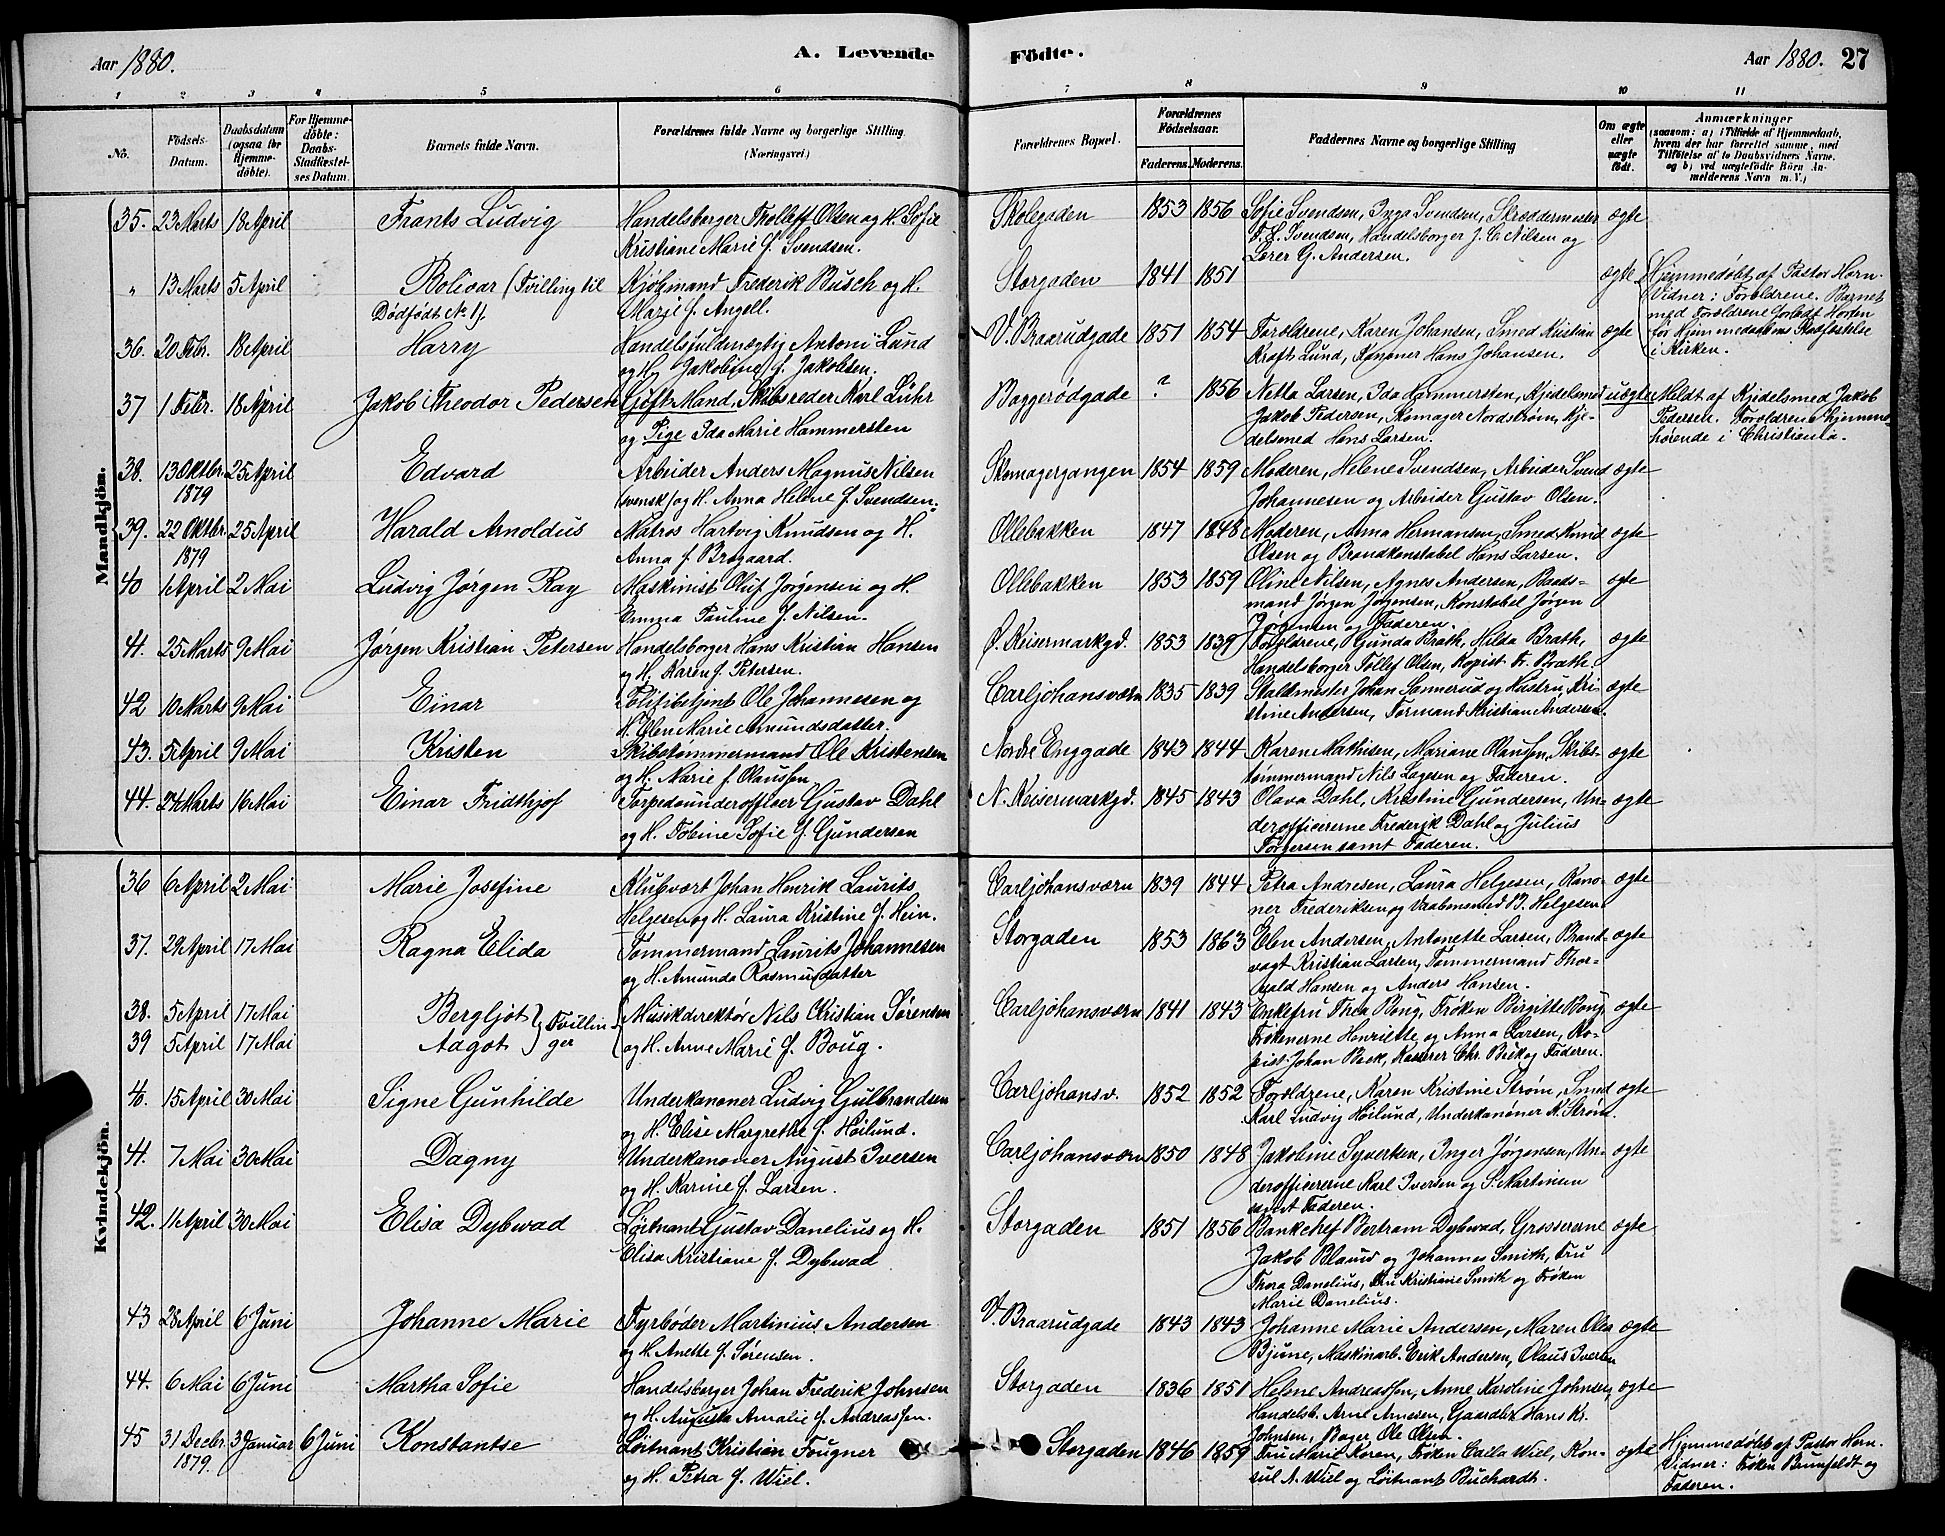 Aar 1880.
A. Levende
1 2 3 4 5 6
No.
Födsels-Datum.
Daabsdatum (ogsaa for Hjemmedöbte).
For Hjemmedöbte: Daabs-Stadfæstelses Datum.
Barnets fulde Navn.
Forældrenes fulde Navne og borgerlige Stilling. (Næringsvei.)
Mandkjön.
35. 23 Marts 18 April Frants Ludvig Handelsborger Tholleff Olsen og H. Sofie
Kristiane Marie f. Svendsen.
" 13 Marts 5 April Bolivar (Tvilling til Kjøbmand Frederik Busch og H.
Dødfødt No 1). Marie f. Angell.
36. 20 Febr. 18 April Harry Handelsfuldmægtig Antoni Lund
og H. Jakobine f. Jakobsen.
37 1 Febr. 18 April Jakob Theodor Pedersen Gift Mand, Skibsreder Karl Lühr
og Pige Ida Marie Hammersten
38. 13 Oktbr. 25 April Edvard Arbeider Anders Magnus Nilsen
1879 (svensk) og H. Anna Helene f. Svendsen.
39. 22 Oktbr. 25 April Harald Arnoldus Matros Hartvig Knudsen og H.
1879 Anna f. Brogaard.
40 1 April 2 Mai Ludvig Jørgen Ray Maskinist Oluf Jørgensen og H.
Emma Pauline f. Nilsen.
41. 25 Marts 9 Mai Jørgen Kristian Petersen Handelsborger Hans Kristian Hansen
og H. Karen f. Petersen.
42 10 Marts 9 Mai Einar Politibetjent Ole Johannesen og
H. Olen Marie Amundsdatter.
43. 5 April 9 Mai Kristen Skibstømmermand Ole Kristensen
og H. Marie f. Olaussen
44. 27 Marts 16 Mai Einar Fridthjof Torpedounderofficer Gustav Dahl
og H. Tobine Sofie f. Gundersen
Kvindekjön.
36 6 April 2 Mai Marie Josefine Klubvært Johan Henrik Laurits
Helgesen og H. Laura Kristine f. Hein.
37. 29 April 17 Mai Ragna Elida Tømmermand Laurits Johannesen
og H. Amunda Rasmusdatter
38. 5 April 17 Mai Bergljot } Tvillin- Musikdirektør Nils Kristian Sørensen
39 5 April 17 Mai Aagot } ger og H. Anne Marie f. Boug.
40. 15 April 30 Mai Signe Gunhilde Underkanoner Ludvig Gulbrandsen
og H. Elise Margrethe f. Höilund.
41. 7 Mai 30 Mai Dagny Underkanoner August Iversen
og H. Karine f. Larsen.
42. 11 April 30 Mai Elisa Dybwad Løitnant Gustav Danelius og H.
Elisa Kristiane f. Dybwad
43 28 April 6 Juni Johanne Marie Fyrbøder Martinius Andersen
og H. Anette f. Sørensen.
44. 6 Mai 6 Juni Martha Sofie Handelsborger Johan Frederik Johnsen
og H. Augusta Amalie f. Andreassen.
45 31 Decbr. 3 Januar 6 Juni Konstantse Løitnant Kristian Fougner
1879. og H. Petra f. Wiel.
Födte.
Aar 1880. 27
7 8 9 10 11
Forældrenes Bopæl.
Forældrenes Födselsaar.
Faderens. Moderens.
Faddernes Navne og borgerlige Stilling
Om ægte eller uægte födt.
Anmærkninger
(saasom: a) i Tilfælde af Hjemmedaab, hvem der har forrettet samme, med Tilföielse af to Daabsvidners Navne, og b) ved uægtefödte Börn Anmelderens Navn m. V.)
Skolegaden 1853 1856 Sofie Svendsen, Inga Svendsen, Skræddermester ægte
F. E. Svendsen, Handelsborger J. C. Nilsen og
Lærer G. Andersen.
Storgaden 1841 1851 ægte Hjemmedøbt af Pastor Horn.
Vidner: Forældrene. Barnet
med Forældrene forladt Horten
før Hjemmedaabens Stadfæstelse
i Kirken.
V. Braarudgade 1851 1854 Forældrene, Karen Johansen, Smed Kristian ægte
Kraft Lund, Kanoner Hans Johansen.
Baggerødgade ? 1856 Netta Larsen, Ida Hammersten, Kjedelsmed uægte Meldt af Kjedelsmed Jakob
Jakob Pedersen, Skomager Nordstrøm, Kje- Pedersen. Forældrene hjemme-
delsmed Hans Larsen. hørende i Christiania.
Skomagergangen 1854 1859 Moderen, Helene Svendsen, Arbeider Svend ægte
Johannesen og Arbeider Gustav Olsen.
Ollebakken 1847 1848 Moderen, Anna Hermansen, Smed Knud ægte
Olsen og Brandkonstabel Hans Larsen.
Ollebakken 1853 1859 Oline Nilsen, Agnes Andersen, Baads- ægte
mand Jørgen Jørgensen, Konstabel Jørgen
Jørgensen og Faderen.
Ø. Keisermarkgd. 1853 1839 Forældrene, Gunda Brath, Hilda Brath, ægte
Handelsborger Tollef Olsen, Kopist Fr. Brath.
Carljohansværn 1835 1839 Staldmester Johan Sannerud og Hustru, Kri- ægte
stine Andersen, Formand Kristian Andersen.
Nordre Enggade 1843 1844 Karen Mathisen, Mariane Olaussen, Skibs- ægte
tømmermand Nils Lagesen og Faderen.
N. Keisermarkgd. 1845 1843 Olava Dahl, Kristine Gundersen, Un- ægte
derofficererne Frederik Dahl og Julius
Torgersen samt Faderen.
Carljohansværn 1839 1844 Petra Andresen, Laura Helgesen, Kano- ægte
ner Frederiksen og Vaabensmed B. Helgesen
Storgaden 1853 1863 Elen Andersen, Antonette Larsen, Brand- ægte
vagt Kristian Larsen, Tømmermand Thor-
vald Hansen og Anders Hansen.
Carljohansværn 1841 1843 Enkefru Thea Boug, Frøken Birgitte Boug, ægte
Frøkenerne Henriette og Anna Larsen, Ko-
pist Johan Beck, Kasserer Chr. Beck og Faderen.
Carljohansv. 1852 1852 Forældrene, Karen Kristine Strøm, Smed ægte
Karl Ludvig Höilund, Underkanoner K. Strøm.
Carljohansværn 1850 1848 Jakobine Syvertsen, Inger Jørgensen, Un- ægte
derofficererne Karl Iversen og S. Martinsen
samt Faderen.
Storgaden 1851 1856 Bankchef Bertram Dybwad, Grossererne ægte
Jakob Blaud og Johannes Smith, Fru
Thora Danelius, Fru Kristiane Smith og Frøken
Marie Danelius.
V. Braarudgade 1843 1843 Johanne Marie Andersen, Maren Olea ægte
Bjune, Maskinarb. Erik Andersen, Olaus Iversen
Storgaden 1836 1851 Helene Andreassen, Anne Karoline Johnsen, ægte
Handelsb. Arne Arnesen, Gaardbr. Hans Kr.
Johnsen, Bager Ole Olsen.
Storgaden 1846 1859 Fru Marie Koren, Frøken Calla Wiel, Kon- ægte Hjemmedøbt af Pastor Horn.
sul A. Wiel og Løitnant Buchardt. Vidner: Frøken Brunfeldt og
Faderen.